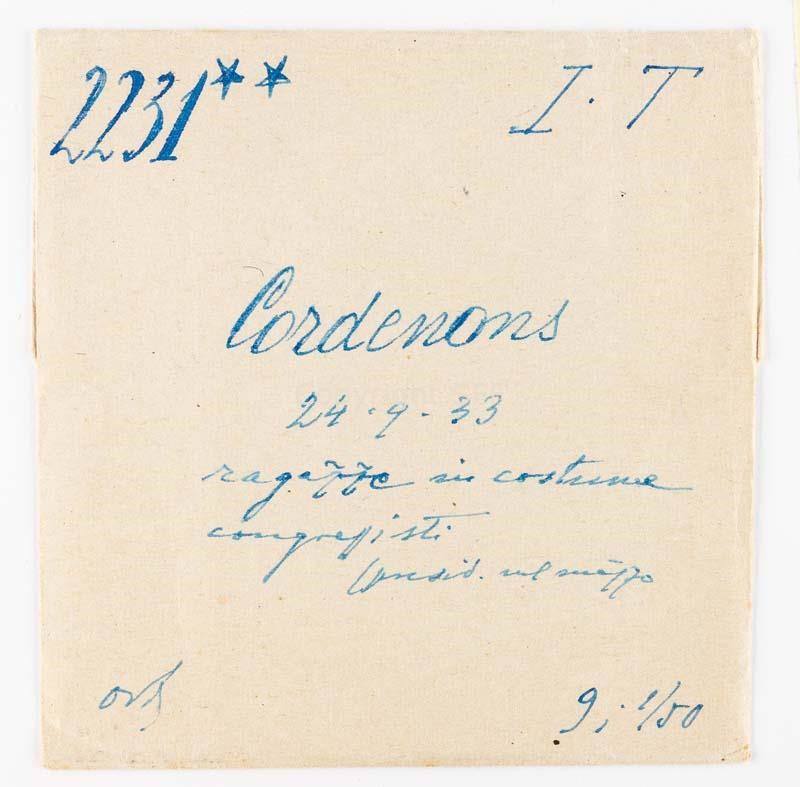 2231** I. T
Cordenons
24.9.33
ragazze in costume
congressisti
(presid. nel mezzo
9; 1/50